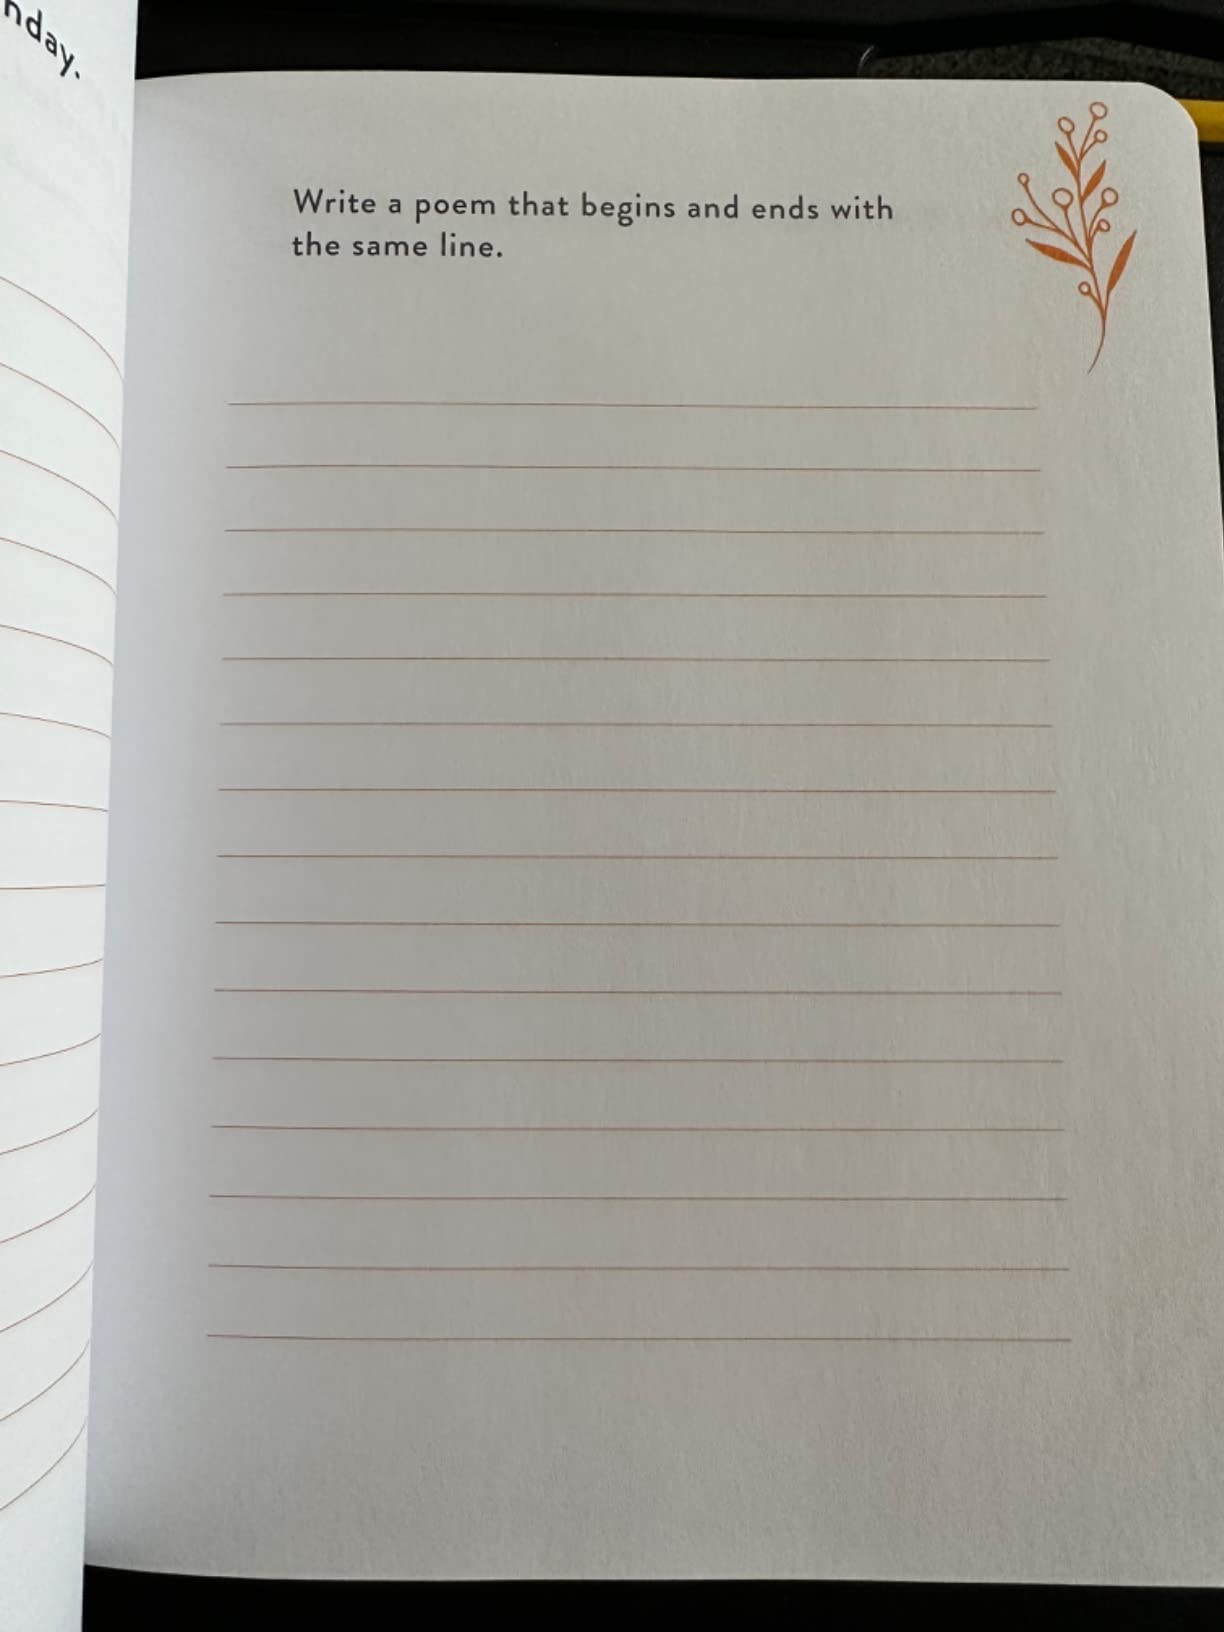 nday.
Write a poem that begins and ends with
the same line.